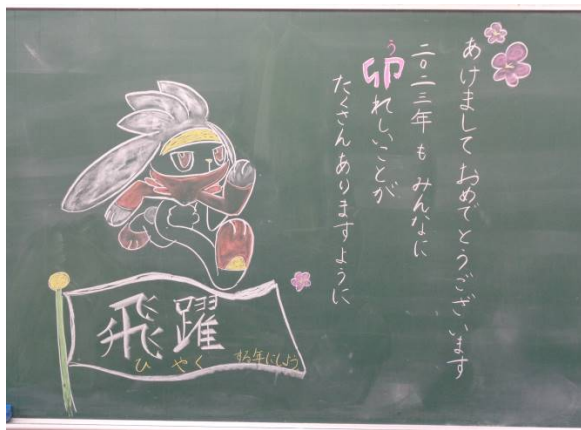 あけましておめでとうございます
二〇二三年もみんなに
う
卯れしいことが
たくさんありますように
飛躍
ひやく
する年にしよう